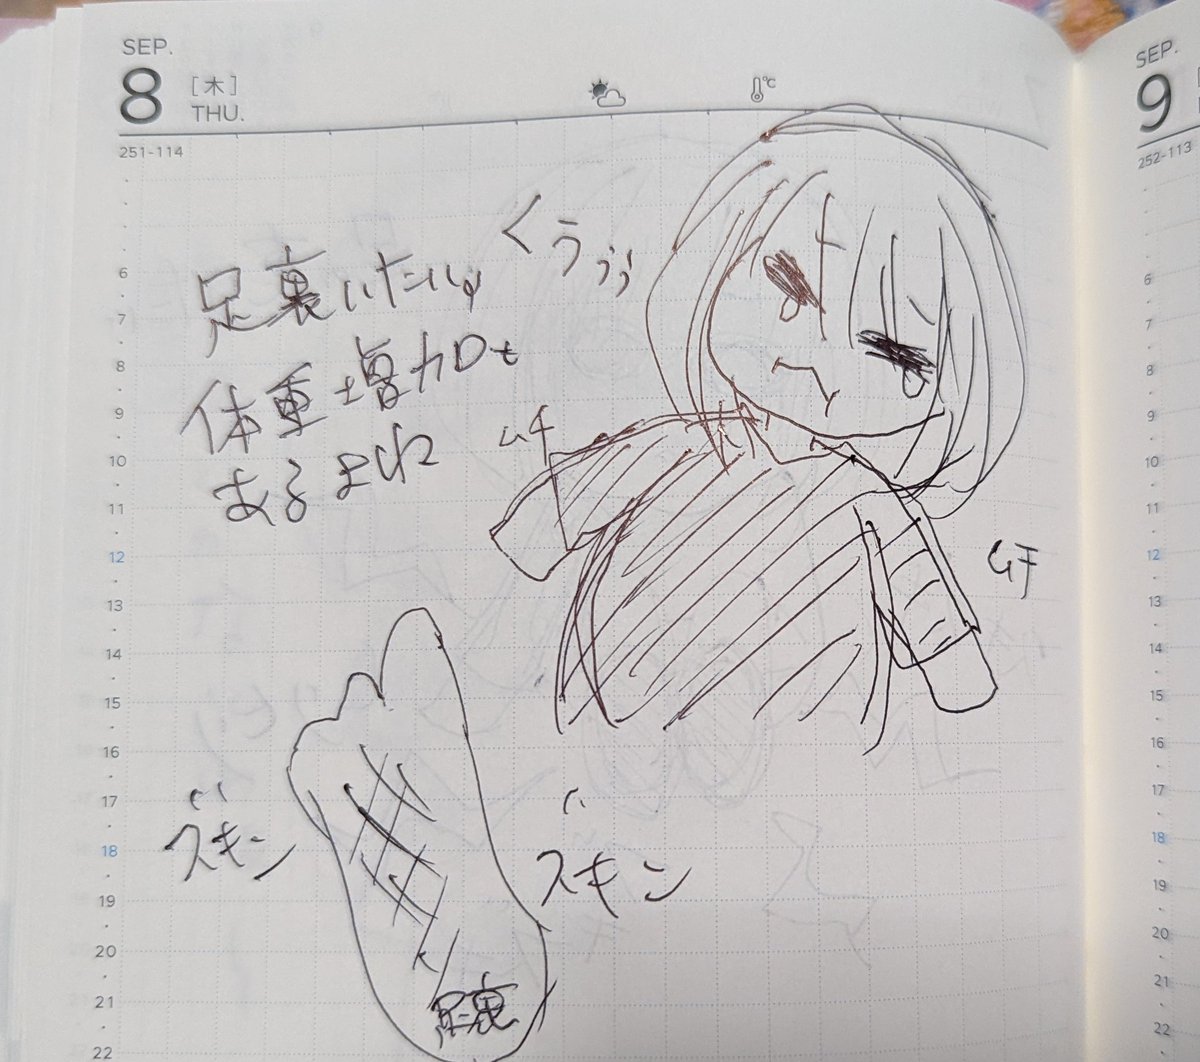 SEP.
8
[木]
THU.
251-114
℃
SEP.
9
252-113
くうぅぅ
足裏いたい
体重増加も
あるまね
ムチ
ムチ
ズキン
ズキン
足裏
6
7
8
9
10
11
12
13
14
15
16
17
18
19
20
21
22
6
7
8
9
10
11
12
13
14
15
16
17
18
19
20
21
22